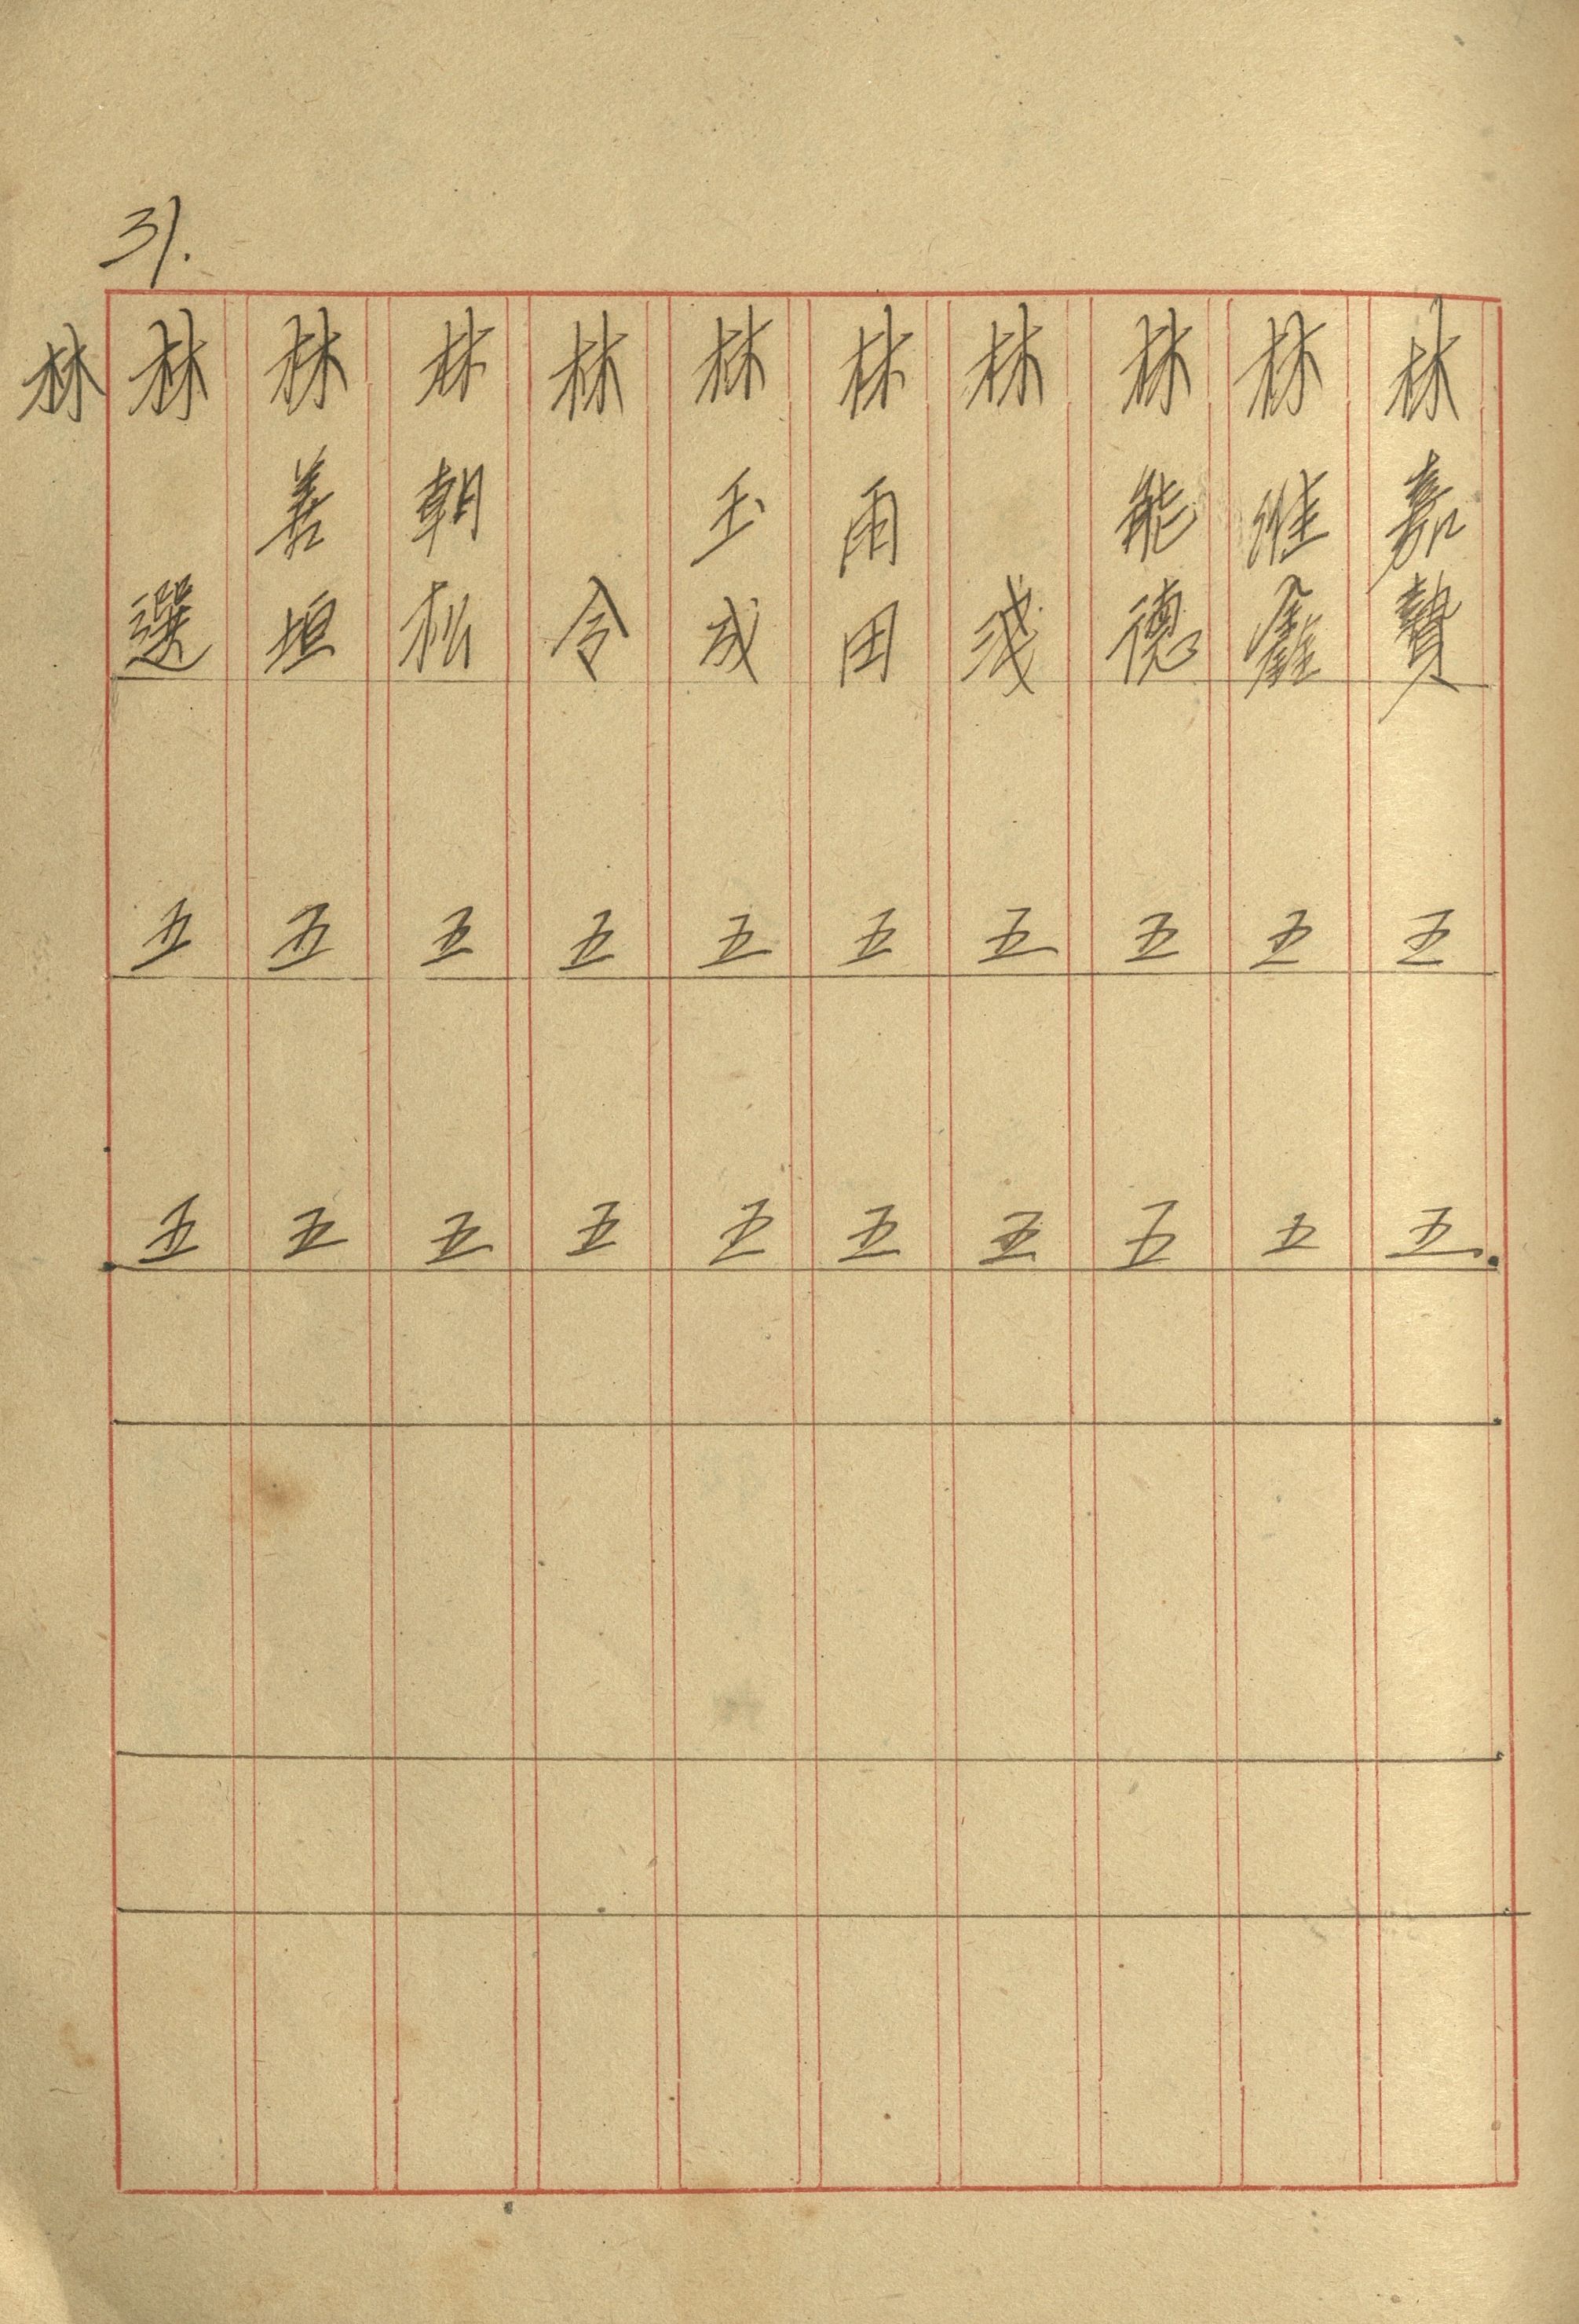 31.
林嘉贄 五 五
林維鑫 五 五
林能德 五 五
林淺 五 五
林雨田 五 五
林玉成 五 五
林令 五 五
林朝松 五 五
林善垣 五 五
林選 五 五
林